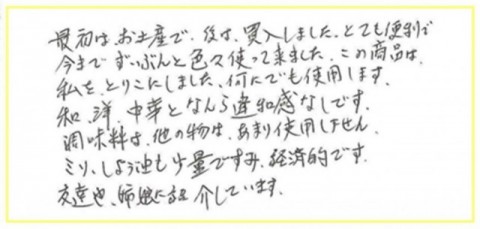 最初は、お土産で、後は、買入しました。とても便利で
今まで ずいぶんと色々使って来ました。この商品は、
私を、とりこにしました、何にでも使用します。
和、洋、中華となんら違和感なしです。
調味料は、他の物は、あまり使用しません。
ミソ、しょう油も少量ですみ、経済的です。
友達や、姉妹に紹介しています。